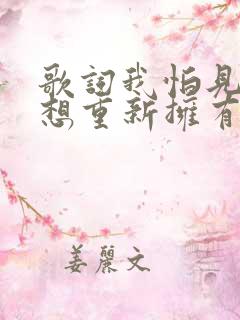 歌詞我怕見
想重新擁有
姜麗文